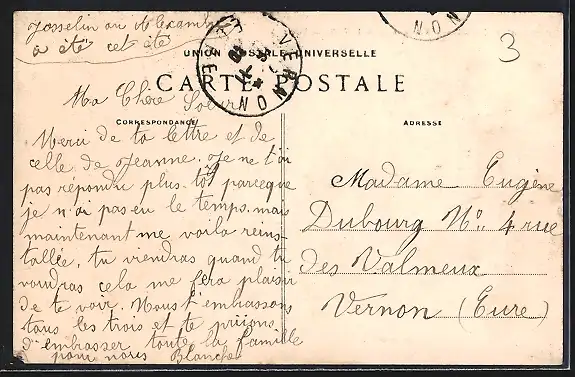 Josselin où Alexandre
a été cet été
UNION POSTALE UNIVERSELLE
CARTE POSTALE
3
VERNON
NON
Ma Chère Soeur
CORRESPONDANCE
Merci de ta lettre et de
celle de Jeanne. Je ne t'ai
pas répondu plus tôt parceque
je n'ai pas eu le temps. mais
maintenant me voila réins
tallée. tu viendras quand tu
voudras cela me fera plaisir
de te voir. Nous t'embrassons
tous les trois et te priions
d'embrasser toute la famille
pour nous Blanche
ADRESSE
Madame Eugène
Dubourg No. 4 rue
des Valmeux
Vernon (Eure)